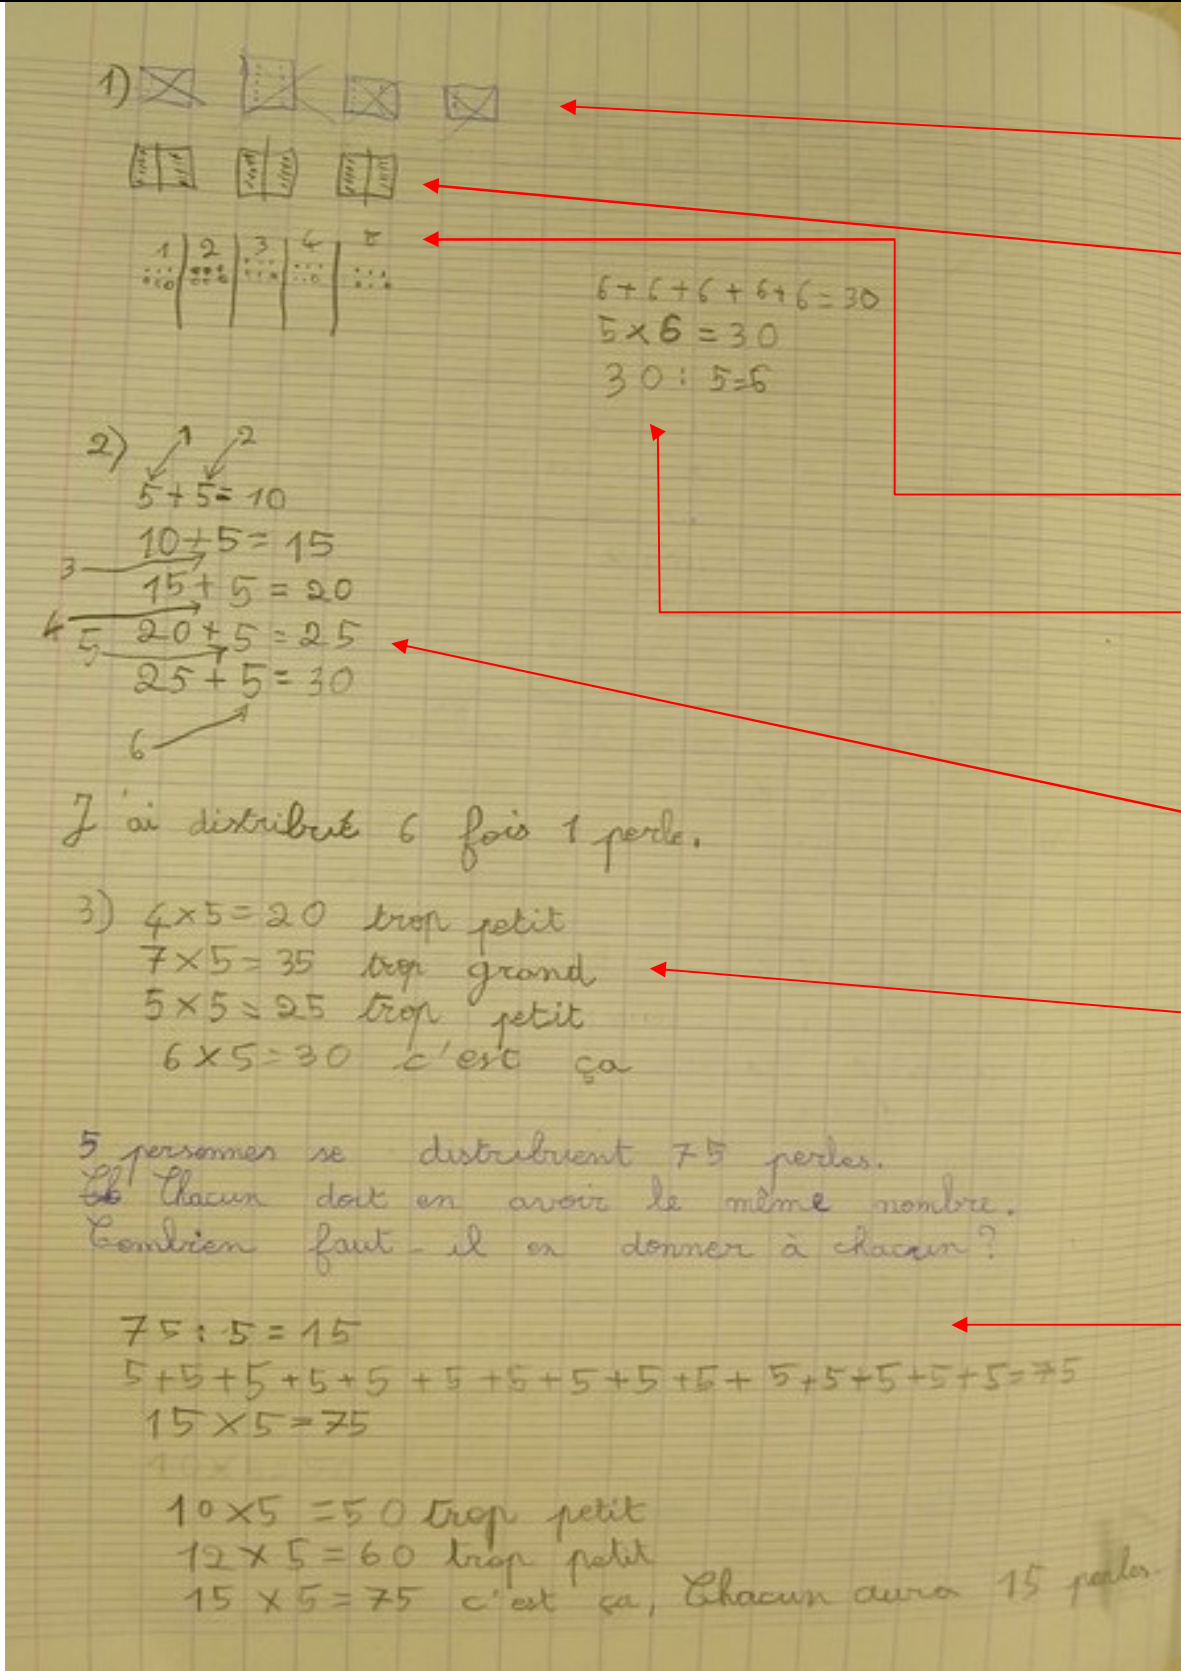 1)
1 2 3 4 5
6+6+6+6+6=30
5×6=30
30:5=6
2) 1 2
5+5=10
10+5=15
3
15+5=20
4
20+5=25
5
25+5=30
6
J'ai distribué 6 fois 1 perle.
3) 4×5=20 trop petit
7×5=35 trop grand
5×5=25 trop petit
6×5=30 c'est ça
5 personnes se distribuent 75 perles.
Chacun doit en avoir le même nombre.
Combien faut-il en donner à chacun?
75:5=15
5+5+5+5+5+5+5+5+5+5+5+5+5+5+5=75
15×5=75
10×5=50 trop petit
12×5=60 trop petit
15×5=75 c'est ça, Chacun aura 15 perles.